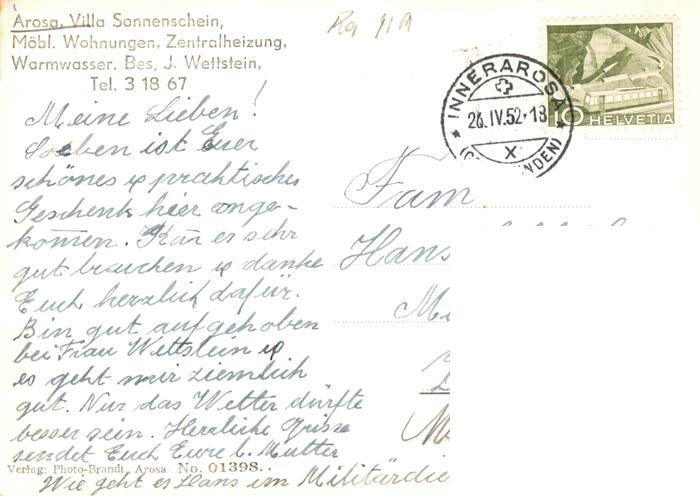 Arosa, Villa Sonnenschein,
Möbl. Wohnungen, Zentralheizung,
Warmwasser. Bes. J. Wettstein,
Tel. 3 18 67
Meine Lieben!
Soeben ist Euer
schönes & praktisches
Geschenk hier ange-
kommen. Kan es sehr
gut brauchen & danke
Euch herzlich dafür.
Bin gut aufgehoben
bei Frau Wettstein &
es geht mir ziemlich
gut. Nur das Wetter dürfte
besser sein. Herzliche Grüsse
sendet Euch Eure l. Mutter
Verlag: Photo-Brandt, Arosa No. 01398.
Wie geht es Hans im Militärdie
INNERAROSA
26.IV.52-18
X
10 HELVETIA
Fam.
Hans